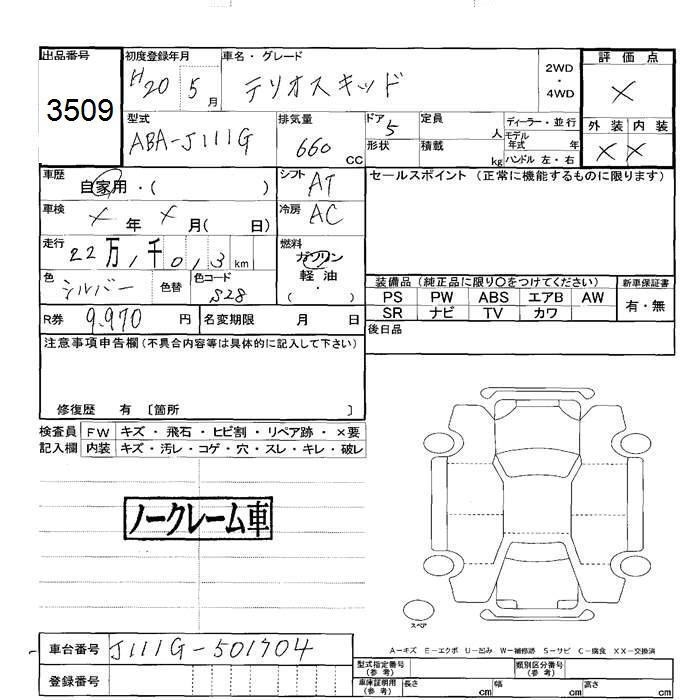 出品番号 初度登録年月 車名・グレード 評価点
3509 H20 5月 テリオスキッド 2WD・4WD ×
型式 排気量 ドア 定員 ディーラー・並行 外装 内装
ABA-J111G 660 CC 5 人 モデル年式 年 × ×
形状 積載 kg ハンドル 左・右
車歴 シフト セールスポイント (正常に機能するものに限ります)
自家用・( ) AT
車検 冷房
× 年 × 月( 日) AC
走行 燃料
22万,1千0,3km ガソリン
色 色替 色コード 軽油
シルバー S28 ・
( )
装備品 (純正品に限り〇をつけてください) 新車保証書
PS PW ABS エアB AW 有・無
SR ナビ TV カワ
R券 9.970 円 名変期限 月 日
後日品
注意事項申告欄(不具合内容等は具体的に記入して下さい)
修復歴 有 〔箇所 〕
検査員 FW キズ・飛石・ヒビ割・リペア跡・×要
記入欄 内装 キズ・汚レ・コゲ・穴・スレ・キレ・破レ
ノークレーム車
スペア
車台番号 J111G-501704
A-キズ E-エクボ U-凹み W-補修跡 S-サビ C-腐食 XX-交換済
登録番号
型式指定番号(参考) 類別区分番号(参考)
車庫証明用(参考) 長さ cm 幅 cm 高さ cm